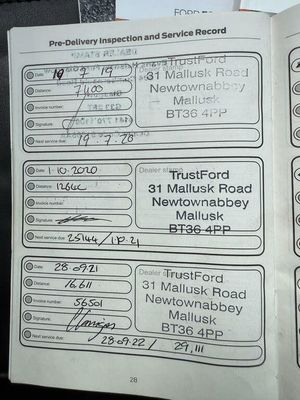 FORD
Pre-Delivery Inspection and Service Record
Date: 19.7.19
Distance: 7400
Invoice number:
Signature:
Next service due: 19.7.20
Dealer stamp
TrustFord
31 Mallusk Road
Newtownabbey
Mallusk
BT36 4PP
Date: 1.10.2020
Distance:
Invoice number:
Signature:
Next service due: 25144 / 1.10.21
Dealer stamp
TrustFord
31 Mallusk Road
Newtownabbey
Mallusk
BT36 4PP
Date: 28.09.21
Distance: 16611
Invoice number: 56501
Signature:
Next service due: 28.09.22 / 29,111
Dealer stamp
TrustFord
31 Mallusk Road
Newtownabbey
Mallusk
BT36 4PP
28